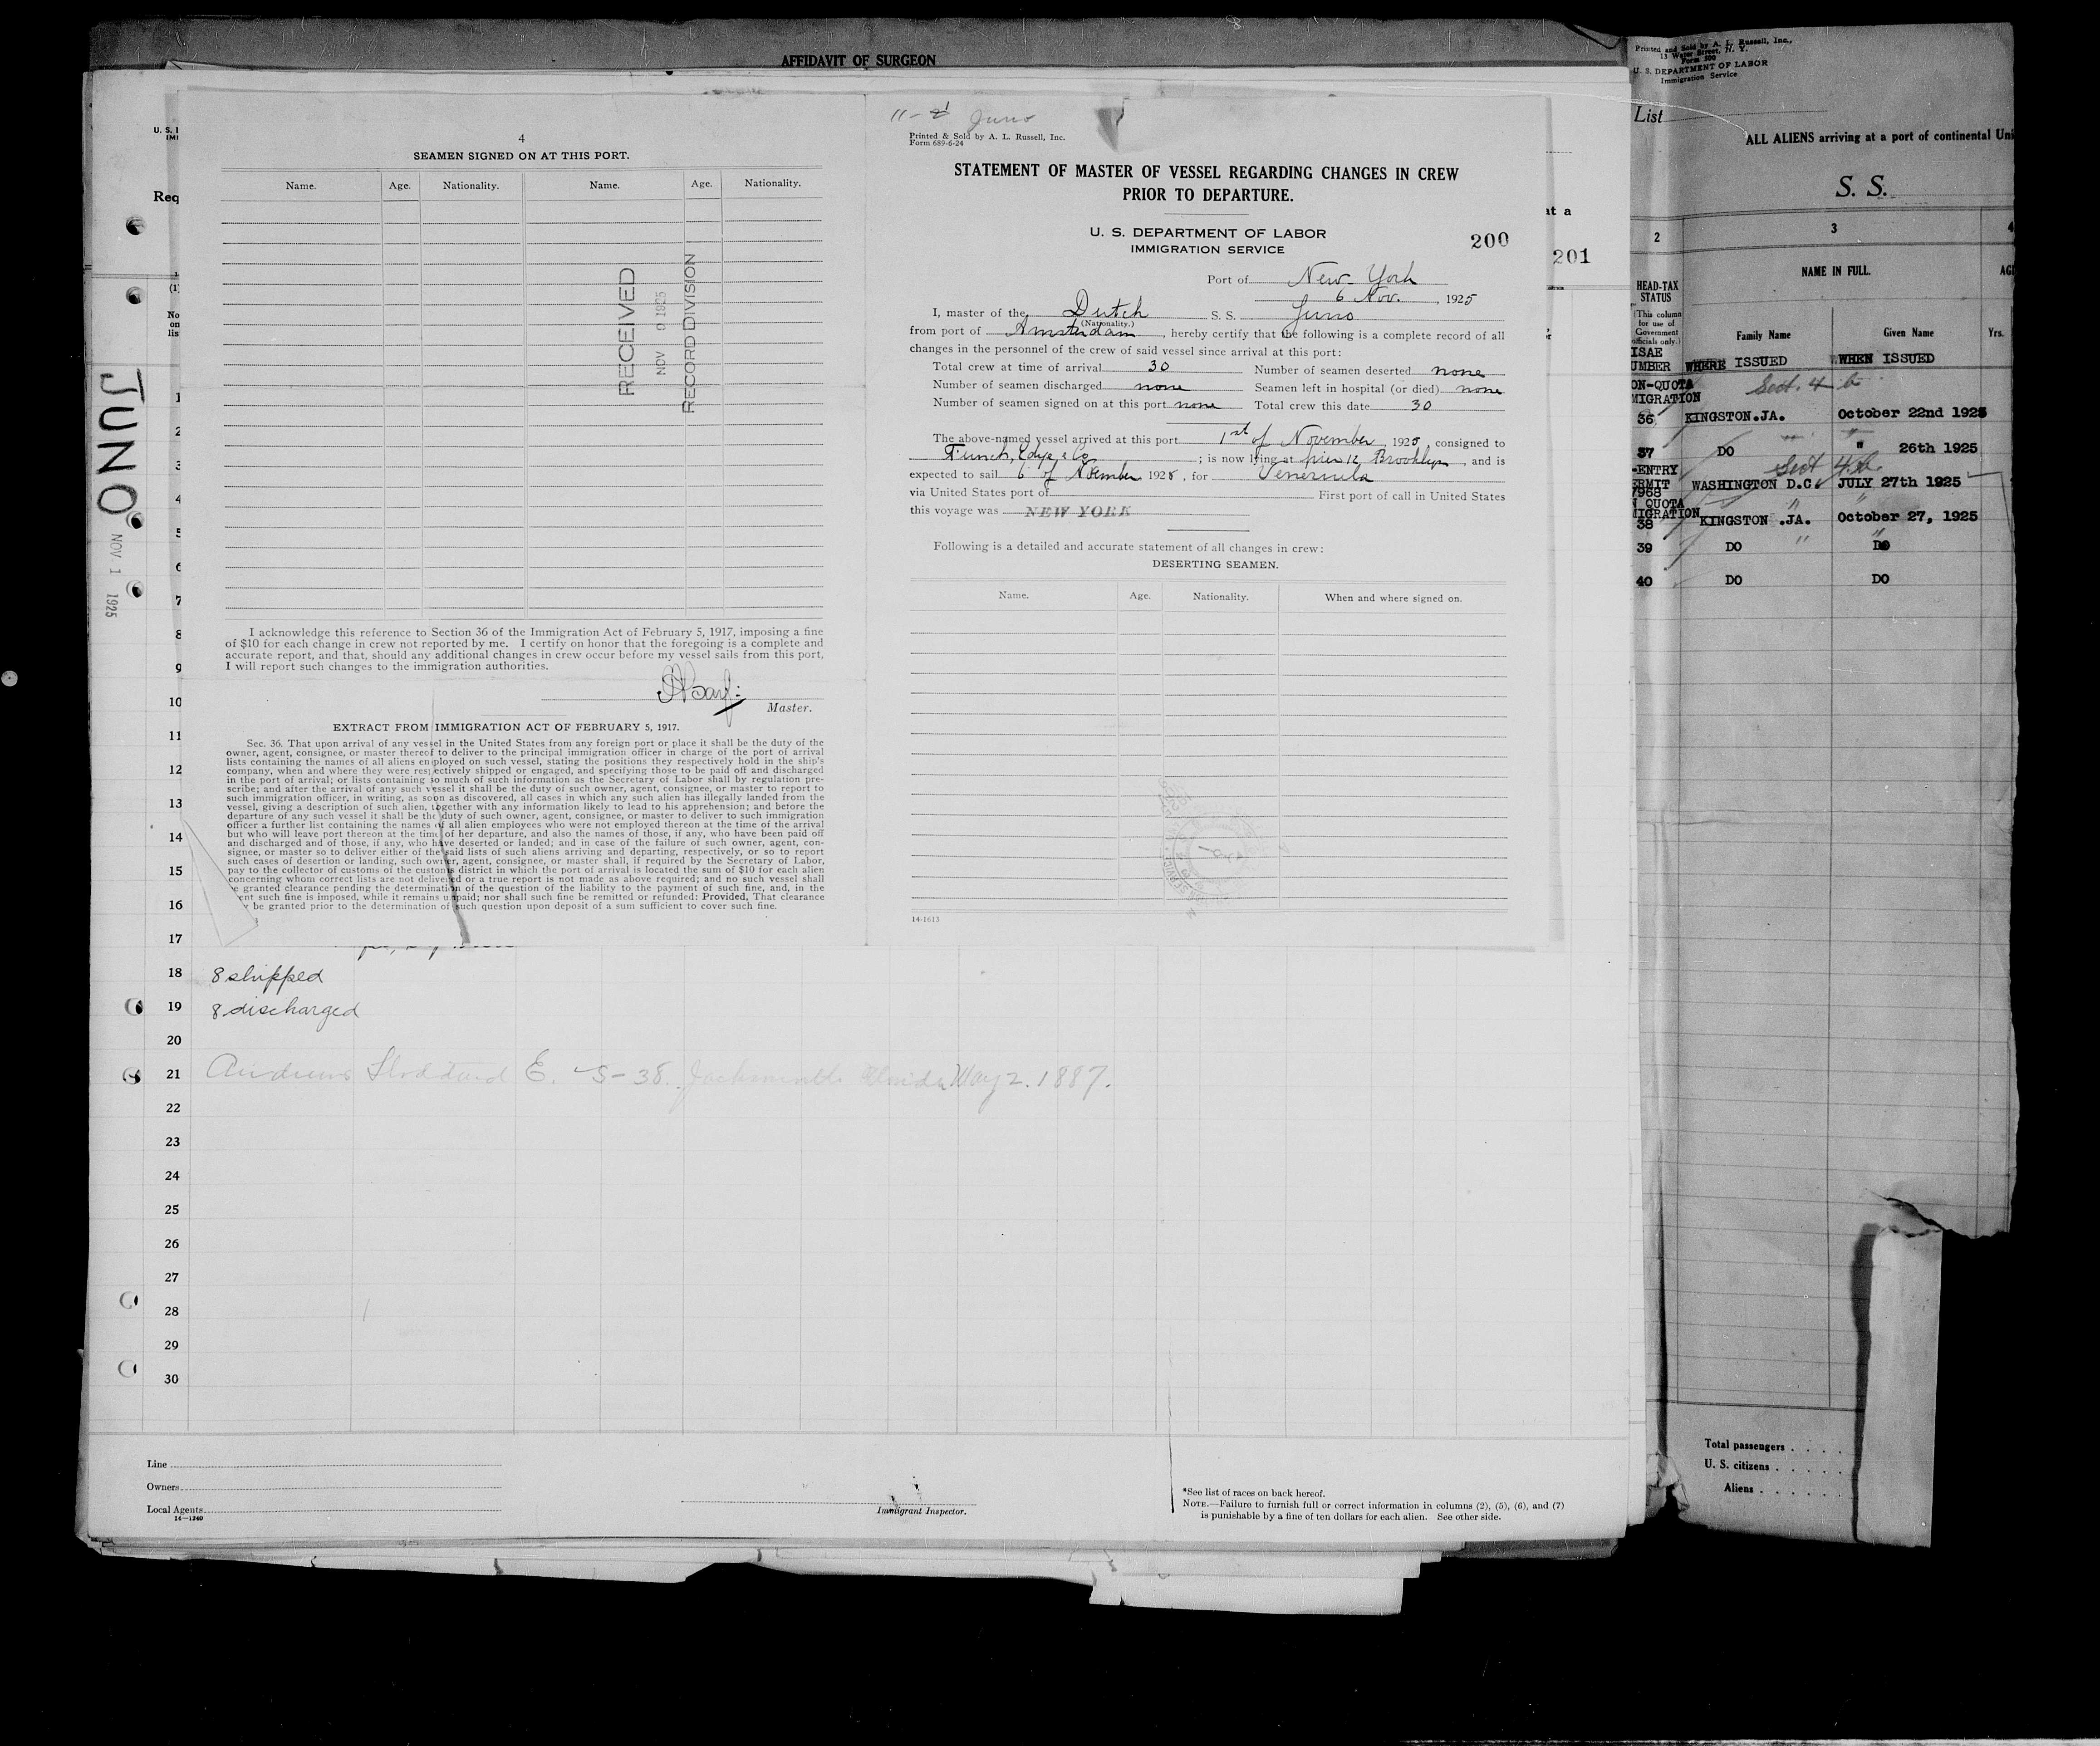 AFFIDAVIT OF SURGEON
4
SEAMEN SIGNED ON AT THIS PORT.
Name. Age. Nationality. Name. Age. Nationality.
RECEIVED
NOV 9 1925
RECORD DIVISION
I acknowledge this reference to Section 36 of the Immigration Act of February 5, 1917, imposing a fine
of $10 for each change in crew not reported by me. I certify on honor that the foregoing is a complete and
accurate report, and that, should any additional changes in crew occur before my vessel sails from this port,
I will report such changes to the immigration authorities.
Master.
EXTRACT FROM IMMIGRATION ACT OF FEBRUARY 5, 1917.
Sec. 36. That upon arrival of any vessel in the United States from any foreign port or place it shall be the duty of the
owner, agent, consignee, or master thereof to deliver to the principal immigration officer in charge of the port of arrival
lists containing the names of all aliens employed on such vessel, stating the positions they respectively hold in the ship's
company, when and where they were respectively shipped or engaged, and specifying those to be paid off and discharged
in the port of arrival; or lists containing so much of such information as the Secretary of Labor shall by regulation pre-
scribe; and after the arrival of any such vessel it shall be the duty of such owner, agent, consignee, or master to report to
such immigration officer, in writing, as soon as discovered, all cases in which any such alien has illegally landed from the
vessel, giving a description of such alien, together with any information likely to lead to his apprehension; and before the
departure of any such vessel it shall be the duty of such owner, agent, consignee, or master to deliver to such immigration
officer a further list containing the names of all alien employees who were not employed thereon at the time of the arrival
but who will leave port thereon at the time of her departure, and also the names of those, if any, who have been paid off
and discharged and of those, if any, who have deserted or landed; and in case of the failure of such owner, agent, con-
signee, or master so to deliver either of the said lists of such aliens arriving and departing, respectively, or so to report
such cases of desertion or landing, such owner, agent, consignee, or master shall, if required by the Secretary of Labor,
pay to the collector of customs of the customs district in which the port of arrival is located the sum of $10 for each alien
concerning whom correct lists are not delivered or a true report is not made as above required; and no such vessel shall
be granted clearance pending the determination of the question of the liability to the payment of such fine, and, in the
ent such fine is imposed, while it remains unpaid; nor shall such fine be remitted or refunded: Provided, That clearance
be granted prior to the determination of such question upon deposit of a sum sufficient to cover such fine.
Juno
Printed & Sold by A. L. Russell, Inc.
Form 689-6-24
STATEMENT OF MASTER OF VESSEL REGARDING CHANGES IN CREW
PRIOR TO DEPARTURE.
U. S. DEPARTMENT OF LABOR
IMMIGRATION SERVICE
200
Port of New York
6 Nov. , 1925
I, master of the Dutch S. S. Juno
(Nationality.)
from port of Amsterdam , hereby certify that the following is a complete record of all
changes in the personnel of the crew of said vessel since arrival at this port:
Total crew at time of arrival 30 Number of seamen deserted none
Number of seamen discharged none Seamen left in hospital (or died) none
Number of seamen signed on at this port none Total crew this date 30
The above-named vessel arrived at this port 1st of November , 1925 , consigned to
Funch, Edye & Co ; is now lying at pier 12 Brooklyn , and is
expected to sail 6 of November 1925 , for Venezuela
via United States port of First port of call in United States
this voyage was NEW YORK
Following is a detailed and accurate statement of all changes in crew:
DESERTING SEAMEN.
Name. Age. Nationality. When and where signed on.
14-1613
U. S. I
IMI
Req
(1)
No
on
lis
JUNO
NOV 1 1925
at a
201
1
2
3
4
5
6
7
8
9
10
11
12
13
14
15
16
17
18 8 shipped
19 8 discharged
20
21 Andrews Stoddard E. S-38. Jacksonville Florida May 2. 1887.
22
23
24
25
26
27
28
29
30
Line
Owners
Local Agents
14—1240
Immigrant Inspector.
*See list of races on back hereof.
NOTE.—Failure to furnish full or correct information in columns (2), (5), (6), and (7)
is punishable by a fine of ten dollars for each alien. See other side.
Printed and Sold by A. L. Russell, Inc.,
13 Water Street, N. Y.
Form 500
U. S. DEPARTMENT OF LABOR
Immigration Service
List
ALL ALIENS arriving at a port of continental Uni
S. S.
2 3 4
HEAD-TAX
STATUS
(This column
for use of
Government
officials only.)
NAME IN FULL. AGE
Family Name Given Name Yrs.
ISAE
UMBER WHERE ISSUED WHEN ISSUED
ON-QUOTA
MIGRATION Sect. 4 b
36 KINGSTON.JA. October 22nd 1925
37 DO " 26th 1925
-ENTRY Sect 4 b
ERMIT WASHINGTON D.C. JULY 27th 1925
7968
N QUOTA
MIGRATION
38 KINGSTON .JA. October 27, 1925
39 DO DO
40 DO DO
Total passengers
U. S. citizens
Aliens